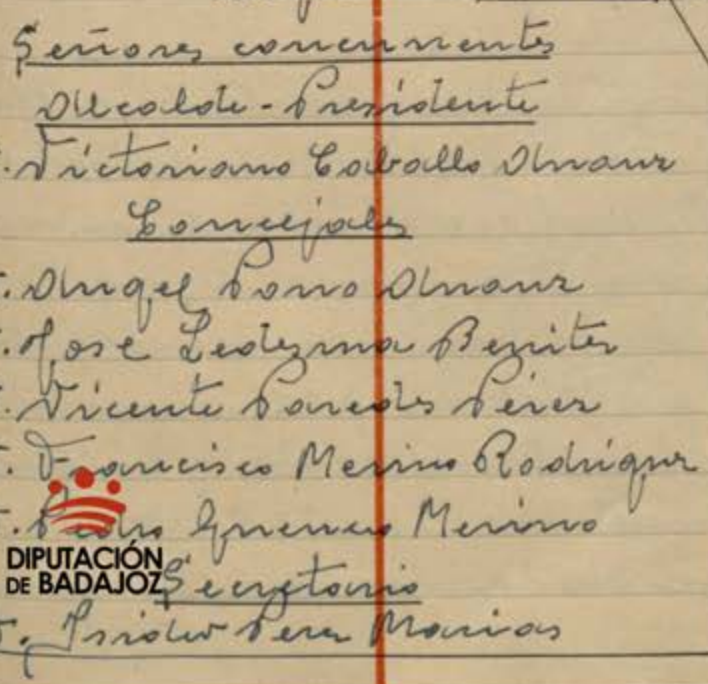 Señores concurrentes
Alcalde-Presidente
Victoriano Caballo
Concejales
Angel
Jose Ledezma Benitez
Vicente Paredes Pérez
Francisco Merino Rodriguez
Pedro Guerrero Merino
DIPUTACIÓN
DE BADAJOZ
Secretario
Isidro Perez Macias